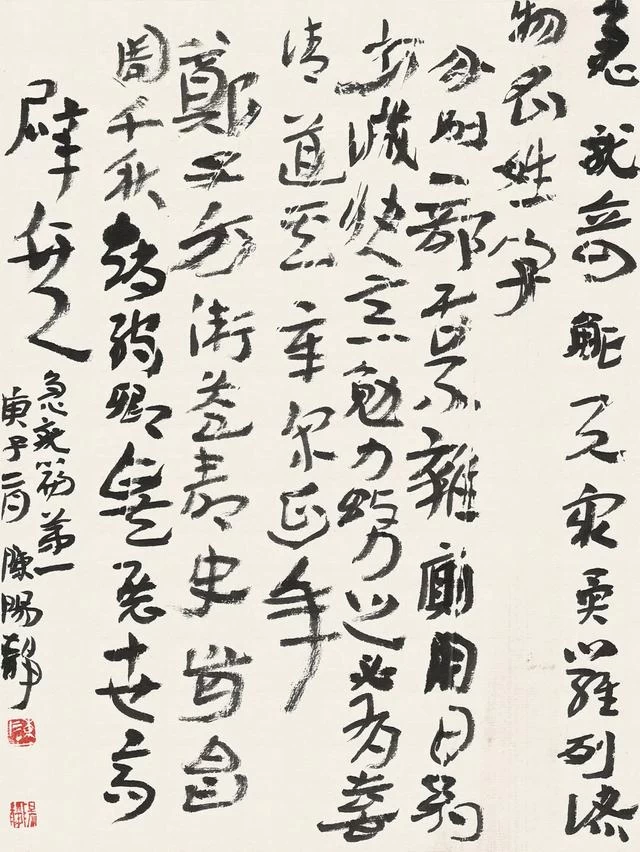 急就奇觚與衆異羅列諸
物名姓字
分別部居不雜廁用日約
少誠快意勉力務之必有喜
請道其章宋延年
鄭子方衛益壽史步昌
周千秋趙孺卿爰展世高
辟兵
急就篇第一
庚子二月陳陽靜